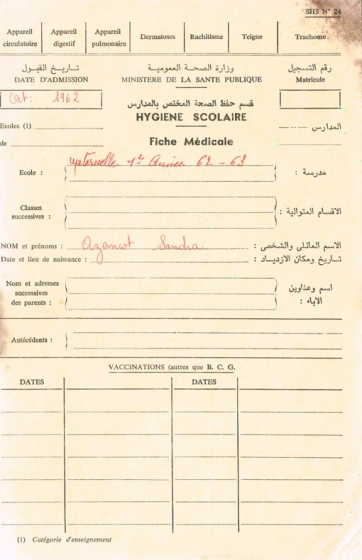 SHS N° 24
Appareil circulatoire
Appareil digestif
Appareil pulmonaire
Dermatoses
Rachitisme
Teigne
Trachome
تـاريـخ القبـول
DATE D'ADMISSION
oct: 1962
وزارة الصحـة العموميـة
MINISTERE DE LA SANTE PUBLIQUE
رقم التسجيل
Matricule
قسم حفظ الصحة المختص بالمدارس
HYGIENE SCOLAIRE
Ecoles (1)
المدارس
de
Fiche Médicale
Ecole :
Maternelle 1re Année 62 - 63
مدرسة :
Classes successives :
الاقسام المتوالية :
NOM et prénoms : Azancot Sandra
الاسم العائلي والشخصي :
Date et lieu de naissance :
تـاريخ ومكان الازديـاد :
Nom et adresses successives des parents :
اسم وعناوين الاباء :
Antécédents :
VACCINATIONS (autres que B. C. G.
DATES
DATES
(1) Catégorie d'enseignement